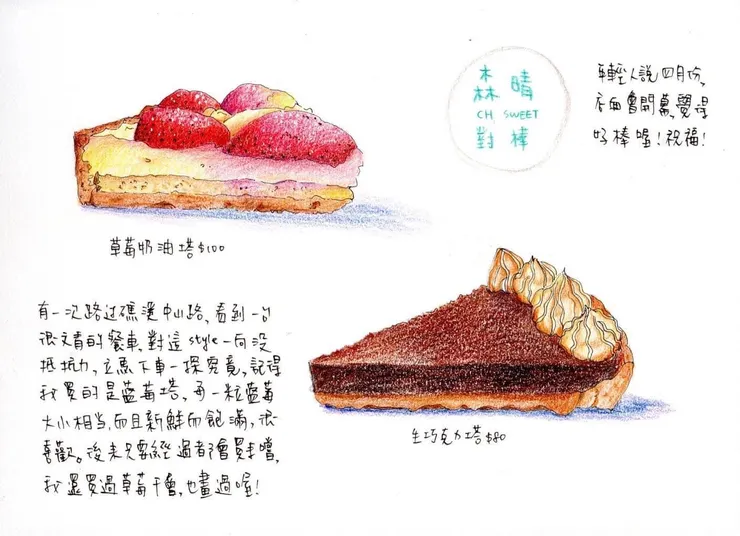 森晴
CH SWEET
對棒
年輕人說四月份,
店面會開幕,覺得
好棒喔!祝福!
草莓奶油塔$100
有一次路過中山路,看到一台
很文青的餐車,對這style一向沒
抵抗力,立馬下車一探究竟,記得
我買的是藍莓塔,每一粒藍莓
大小相當,而且新鮮而飽滿,很
喜歡。後來只要經過都會買來嚐,
我還買過草莓千層,也畫過喔!
生巧克力塔$80